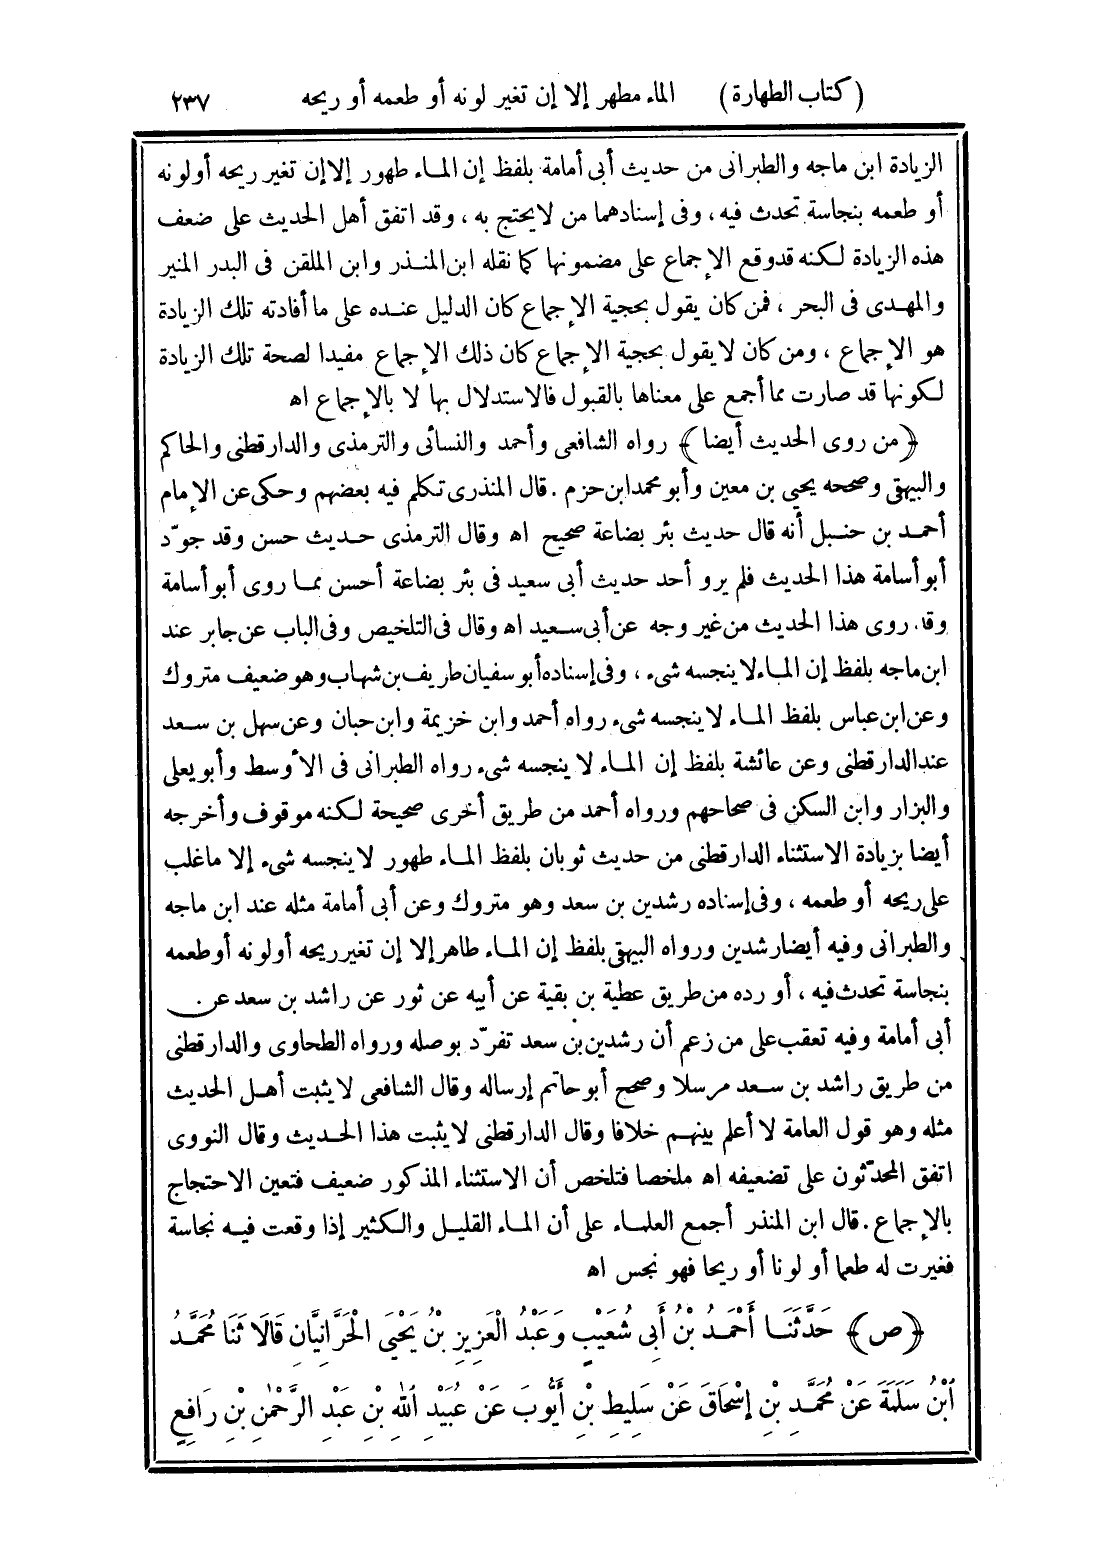 (كتاب الطهارة) الماء مطهر إلا إن تغير لونه أو طعمه أو ريحه ٢٣٧
الزيادة ابن ماجه والطبرانى من حديث أبى أمامة بلفظ إن الماء طهور إلا إن تغير ريحه أو لونه
أو طعمه بنجاسة تحدث فيه، وفى إسنادهما من لا يحتج به، وقد اتفق أهل الحديث على ضعف
هذه الزيادة لكنه قد وقع الإجماع على مضمونها كما نقله ابن المنذر وابن الملقن فى البدر المنير
والمهدى فى البحر، فمن كان يقول بحجية الإجماع كان الدليل عنده على ما أفادته تلك الزيادة
هو الإجماع، ومن كان لا يقول بحجية الإجماع كان ذلك الإجماع مفيدا لصحة تلك الزيادة
لكونها قد صارت مما أجمع على معناها بالقبول فالاستدلال بها لا بالإجماع اه
﴿من روى الحديث أيضا﴾ رواه الشافعى وأحمد والنسائى والترمذى والدارقطنى والحاكم
والبيهقى وصححه يحيى بن معين وأبو محمد ابن حزم. قال المنذرى تكلم فيه بعضهم وحكى عن الإمام
أحمد بن حنبل أنه قال حديث بئر بضاعة صحيح اه وقال الترمذى حديث حسن وقد جوّد
أبو أسامة هذا الحديث فلم يرو أحد حديث أبى سعيد فى بئر بضاعة أحسن مما روى أبو أسامة
وقد روى هذا الحديث من غير وجه عن أبى سعيد اه وقال فى التلخيص وفى الباب عن جابر عند
ابن ماجه بلفظ إن الماء لا ينجسه شىء، وفى إسناده أبو سفيان طريف بن شهاب وهو ضعيف متروك
وعن ابن عباس بلفظ الماء لا ينجسه شىء رواه أحمد وابن خزيمة وابن حبان وعن سهل بن سعد
عند الدارقطنى وعن عائشة بلفظ إن الماء لا ينجسه شىء رواه الطبرانى فى الأوسط وأبو يعلى
والبزار وابن السكن فى صحاحهم ورواه أحمد من طريق أخرى صحيحة لكنه موقوف وأخرجه
أيضا بزيادة الاستثناء الدارقطنى من حديث ثوبان بلفظ الماء طهور لا ينجسه شىء إلا ما غلب
على ريحه أو طعمه، وفى إسناده رشدين بن سعد وهو متروك وعن أبى أمامة مثله عند ابن ماجه
والطبرانى وفيه أيضا رشدين ورواه البيهقى بلفظ إن الماء طاهر إلا إن تغير ريحه أو لونه أو طعمه
بنجاسة تحدث فيه، أورده من طريق عطية بن بقية عن أبيه عن ثور عن راشد بن سعد عن
أبى أمامة وفيه تعقب على من زعم أن رشدين بن سعد تفرّد بوصله ورواه الطحاوى والدارقطنى
من طريق راشد بن سعد مرسلا وصحح أبو حاتم إرساله وقال الشافعى لا يثبت أهل الحديث
مثله وهو قول العامة لا أعلم بينهم خلافا وقال الدارقطنى لا يثبت هذا الحديث وقال النووى
اتفق المحدّثون على تضعيفه اه ملخصا فتلخص أن الاستثناء المذكور ضعيف فتعين الاحتجاج
بالإجماع. قال ابن المنذر أجمع العلماء على أن الماء القليل والكثير إذا وقعت فيه نجاسة
فغيرت له طعما أو لونا أو ريحا فهو نجس اه
﴿ص﴾ حَدَّثَنَا أَحْمَدُ بْنُ أَبِى شُعَيْبٍ وَعَبْدُ الْعَزِيزِ بْنُ يَحْيَى الْحَرَّانِيَّانِ قَالَا ثَنَا مُحَمَّدُ
ابْنُ سَلَمَةَ عَنْ مُحَمَّدِ بْنِ إِسْحَاقَ عَنْ سَلِيطِ بْنِ أَيُّوبَ عَنْ عُبَيْدِ اللهِ بْنِ عَبْدِ الرَّحْمٰنِ بْنِ رَافِعٍ